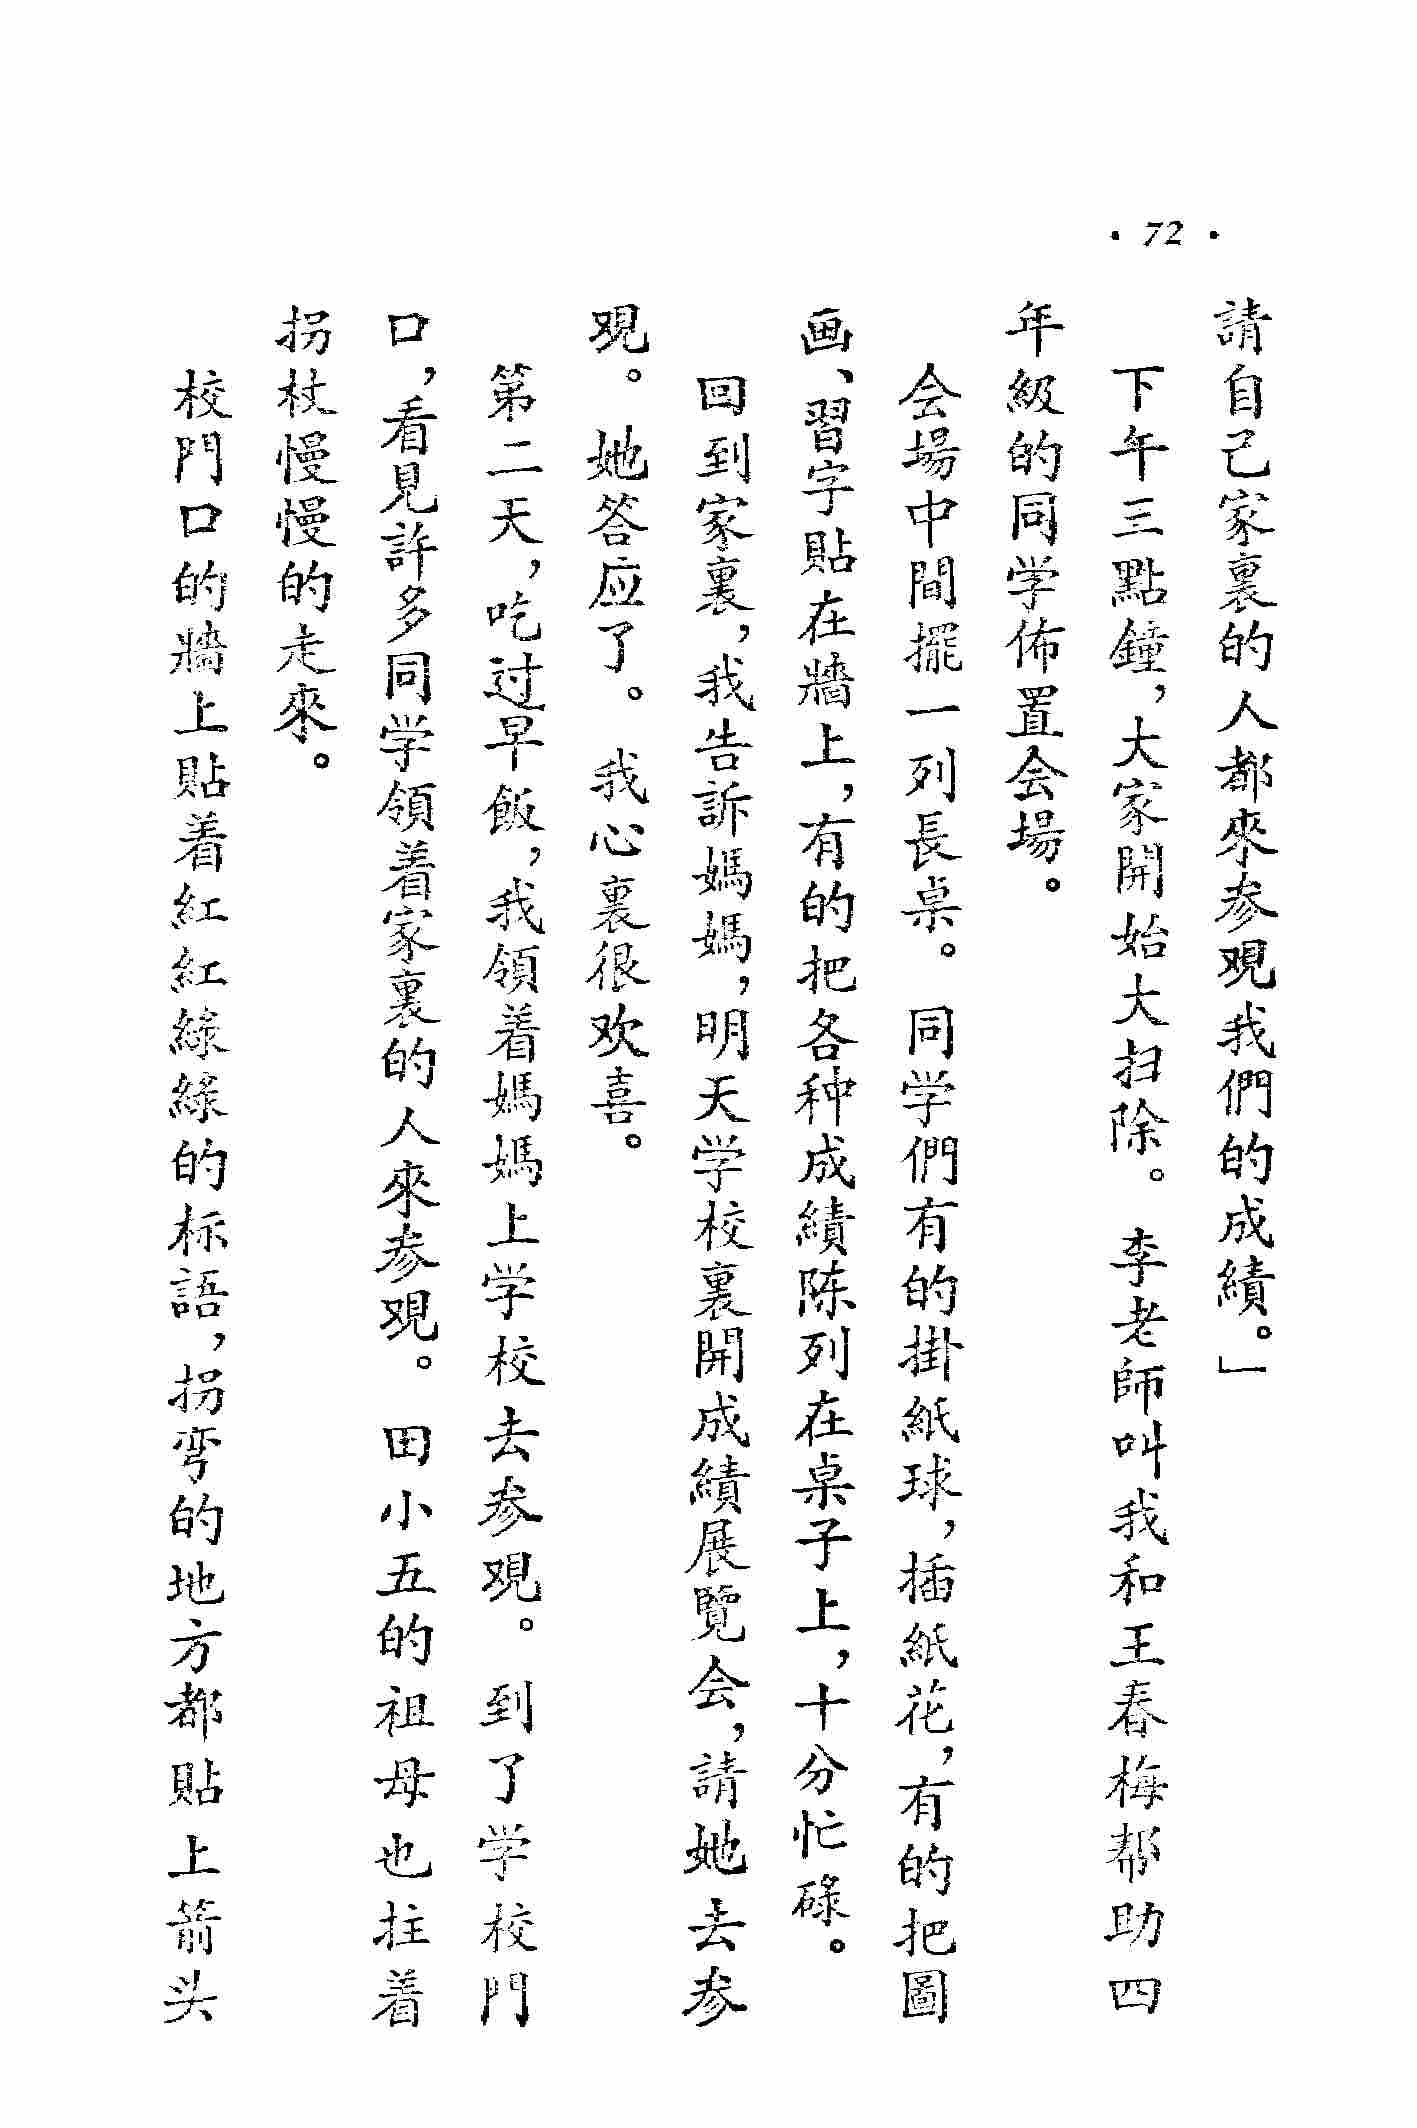 · 72 ·
請自己家裏的人都來参观我們的成績。」
下午三點鐘，大家開始大扫除。李老師叫我和王春梅帮助四
年級的同学佈置会場。
会場中間擺一列長桌。同学們有的掛紙球，插紙花，有的把圖
画、習字貼在牆上，有的把各种成績陈列在桌子上，十分忙碌。
回到家裏，我告訴媽媽，明天学校裏開成績展覽会，請她去参
观。她答应了。我心裏很欢喜。
第二天，吃过早飯，我領着媽媽上学校去参观。到了学校門
口，看見許多同学領着家裏的人來参观。田小五的祖母也拄着
拐杖慢慢的走來。
校門口的牆上貼着紅紅綠綠的标語，拐弯的地方都貼上箭头